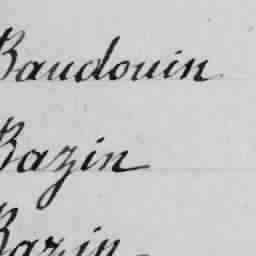 Baudouin
Bazin
Bazin